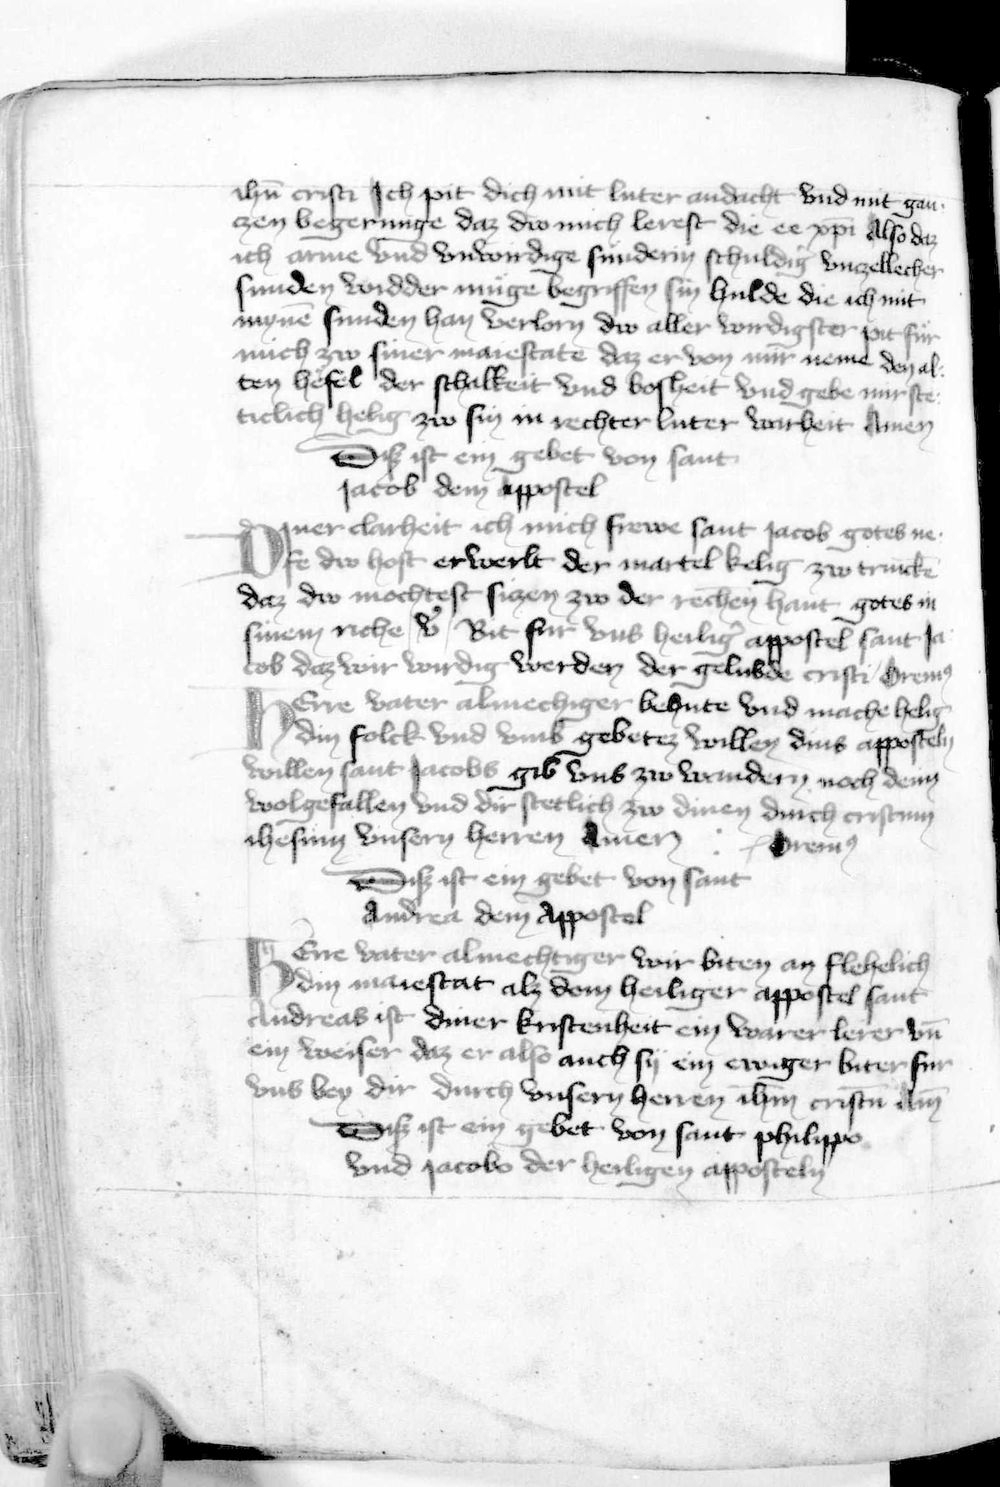 ihū cristi Ich pit dich mit luter andacht vnd mit gan-
czen begerunge daz dw mich lerest die ee xp̄i Also daz
ich arme vnd vnwirdige sunderin schuldig vnzellecher
sunden widder muge begriffen sin hulde die ich mit
mynē sunden han verlorn dw aller wirdigster pit fur
mich zw siner maiestate daz er von mir neme den al-
ten hefel der schalkeit vnd bosheit vnd gebe mir ste-
ticlich helig zw sin in rechter luter warheit Amen
Diß ist ein gebet von sant
Jacob dem appostel
Diner clarheit ich mich frewe sant Jacob gotes ne-
fe dw host erwerbt der martel kelig zw trinckē
daz dw mochtest siczen zw der rechen hant gotes in
sinem riche V̊ Bit fur vns heilig' appostel sant Ja-
cob daz wir wirdig werden der gelubde cristi Orem9
HErre vater almechiger behute vnd mache helig
din folck vnd vmb gebetez willen dins apposteln
willen sant Jacobs gib vns zw wandern noch dem
wolgefallen vnd dir stetlich zw dinen durch cristum
ihesum vnsern herren Amen : Orem9
Diß ist ein gebet von sant
Andrea dem Appostel
HErre vater almechtiger wir biten an flehelich
din maiestat alz dem heiliger appostel sant
Andreas ist diner kristenheit ein warer lerer vn̄
ein weiser daz er also auch sy ein ewiger biter fur
vns bey dir durch vnsern herren ih̄m cristū Am̄
Diß ist ein gebet von sant philippo
vnd Jacobo der heiligen apposteln